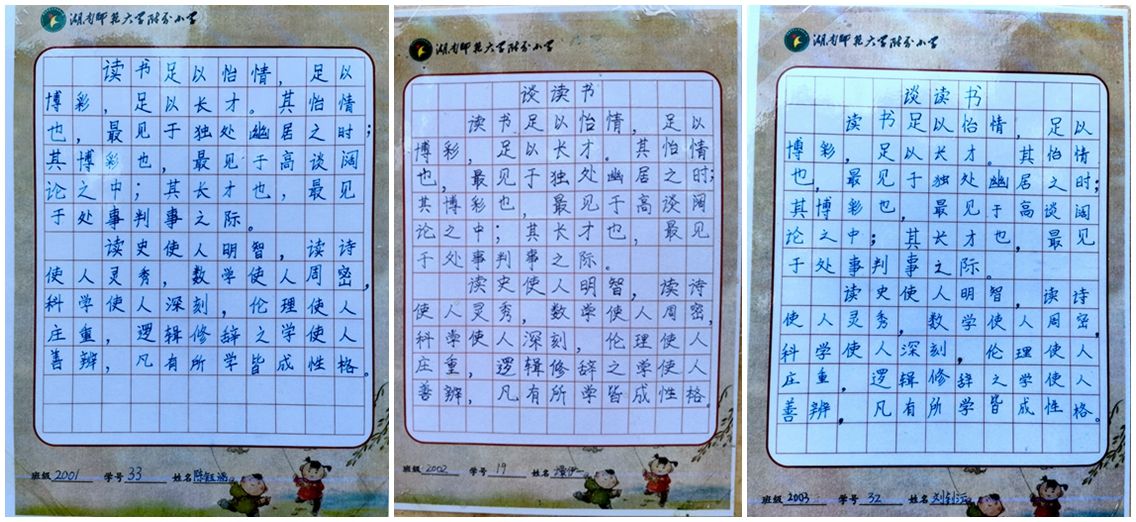 湖南师范大学附分小学
读书足以怡情，足以
博彩，足以长才。其怡情
也，最见于独处幽居之时；
其博彩也，最见于高谈阔
论之中；其长才也，最见
于处事判事之际。
读史使人明智，读诗
使人灵秀，数学使人周密，
科学使人深刻，伦理使人
庄重，逻辑修辞之学使人
善辨，凡有所学皆成性格。
班级 2001 学号 33 姓名
湖南师范大学附分小学
谈读书
读书足以怡情，足以
博彩，足以长才。其怡情
也，最见于独处幽居之时；
其博彩也，最见于高谈阔
论之中；其长才也，最见
于处事判事之际。
读史使人明智，读诗
使人灵秀，数学使人周密，
科学使人深刻，伦理使人
庄重，逻辑修辞之学使人
善辨，凡有所学皆成性格。
班级 2002 学号 19 姓名
湖南师范大学附分小学
谈读书
读书足以怡情，足以
博彩，足以长才。其怡情
也，最见于独处幽居之时；
其博彩也，最见于高谈阔
论之中；其长才也，最见
于处事判事之际。
读史使人明智，读诗
使人灵秀，数学使人周密，
科学使人深刻，伦理使人
庄重，逻辑修辞之学使人
善辨，凡有所学皆成性格。
班级 2003 学号 32 姓名